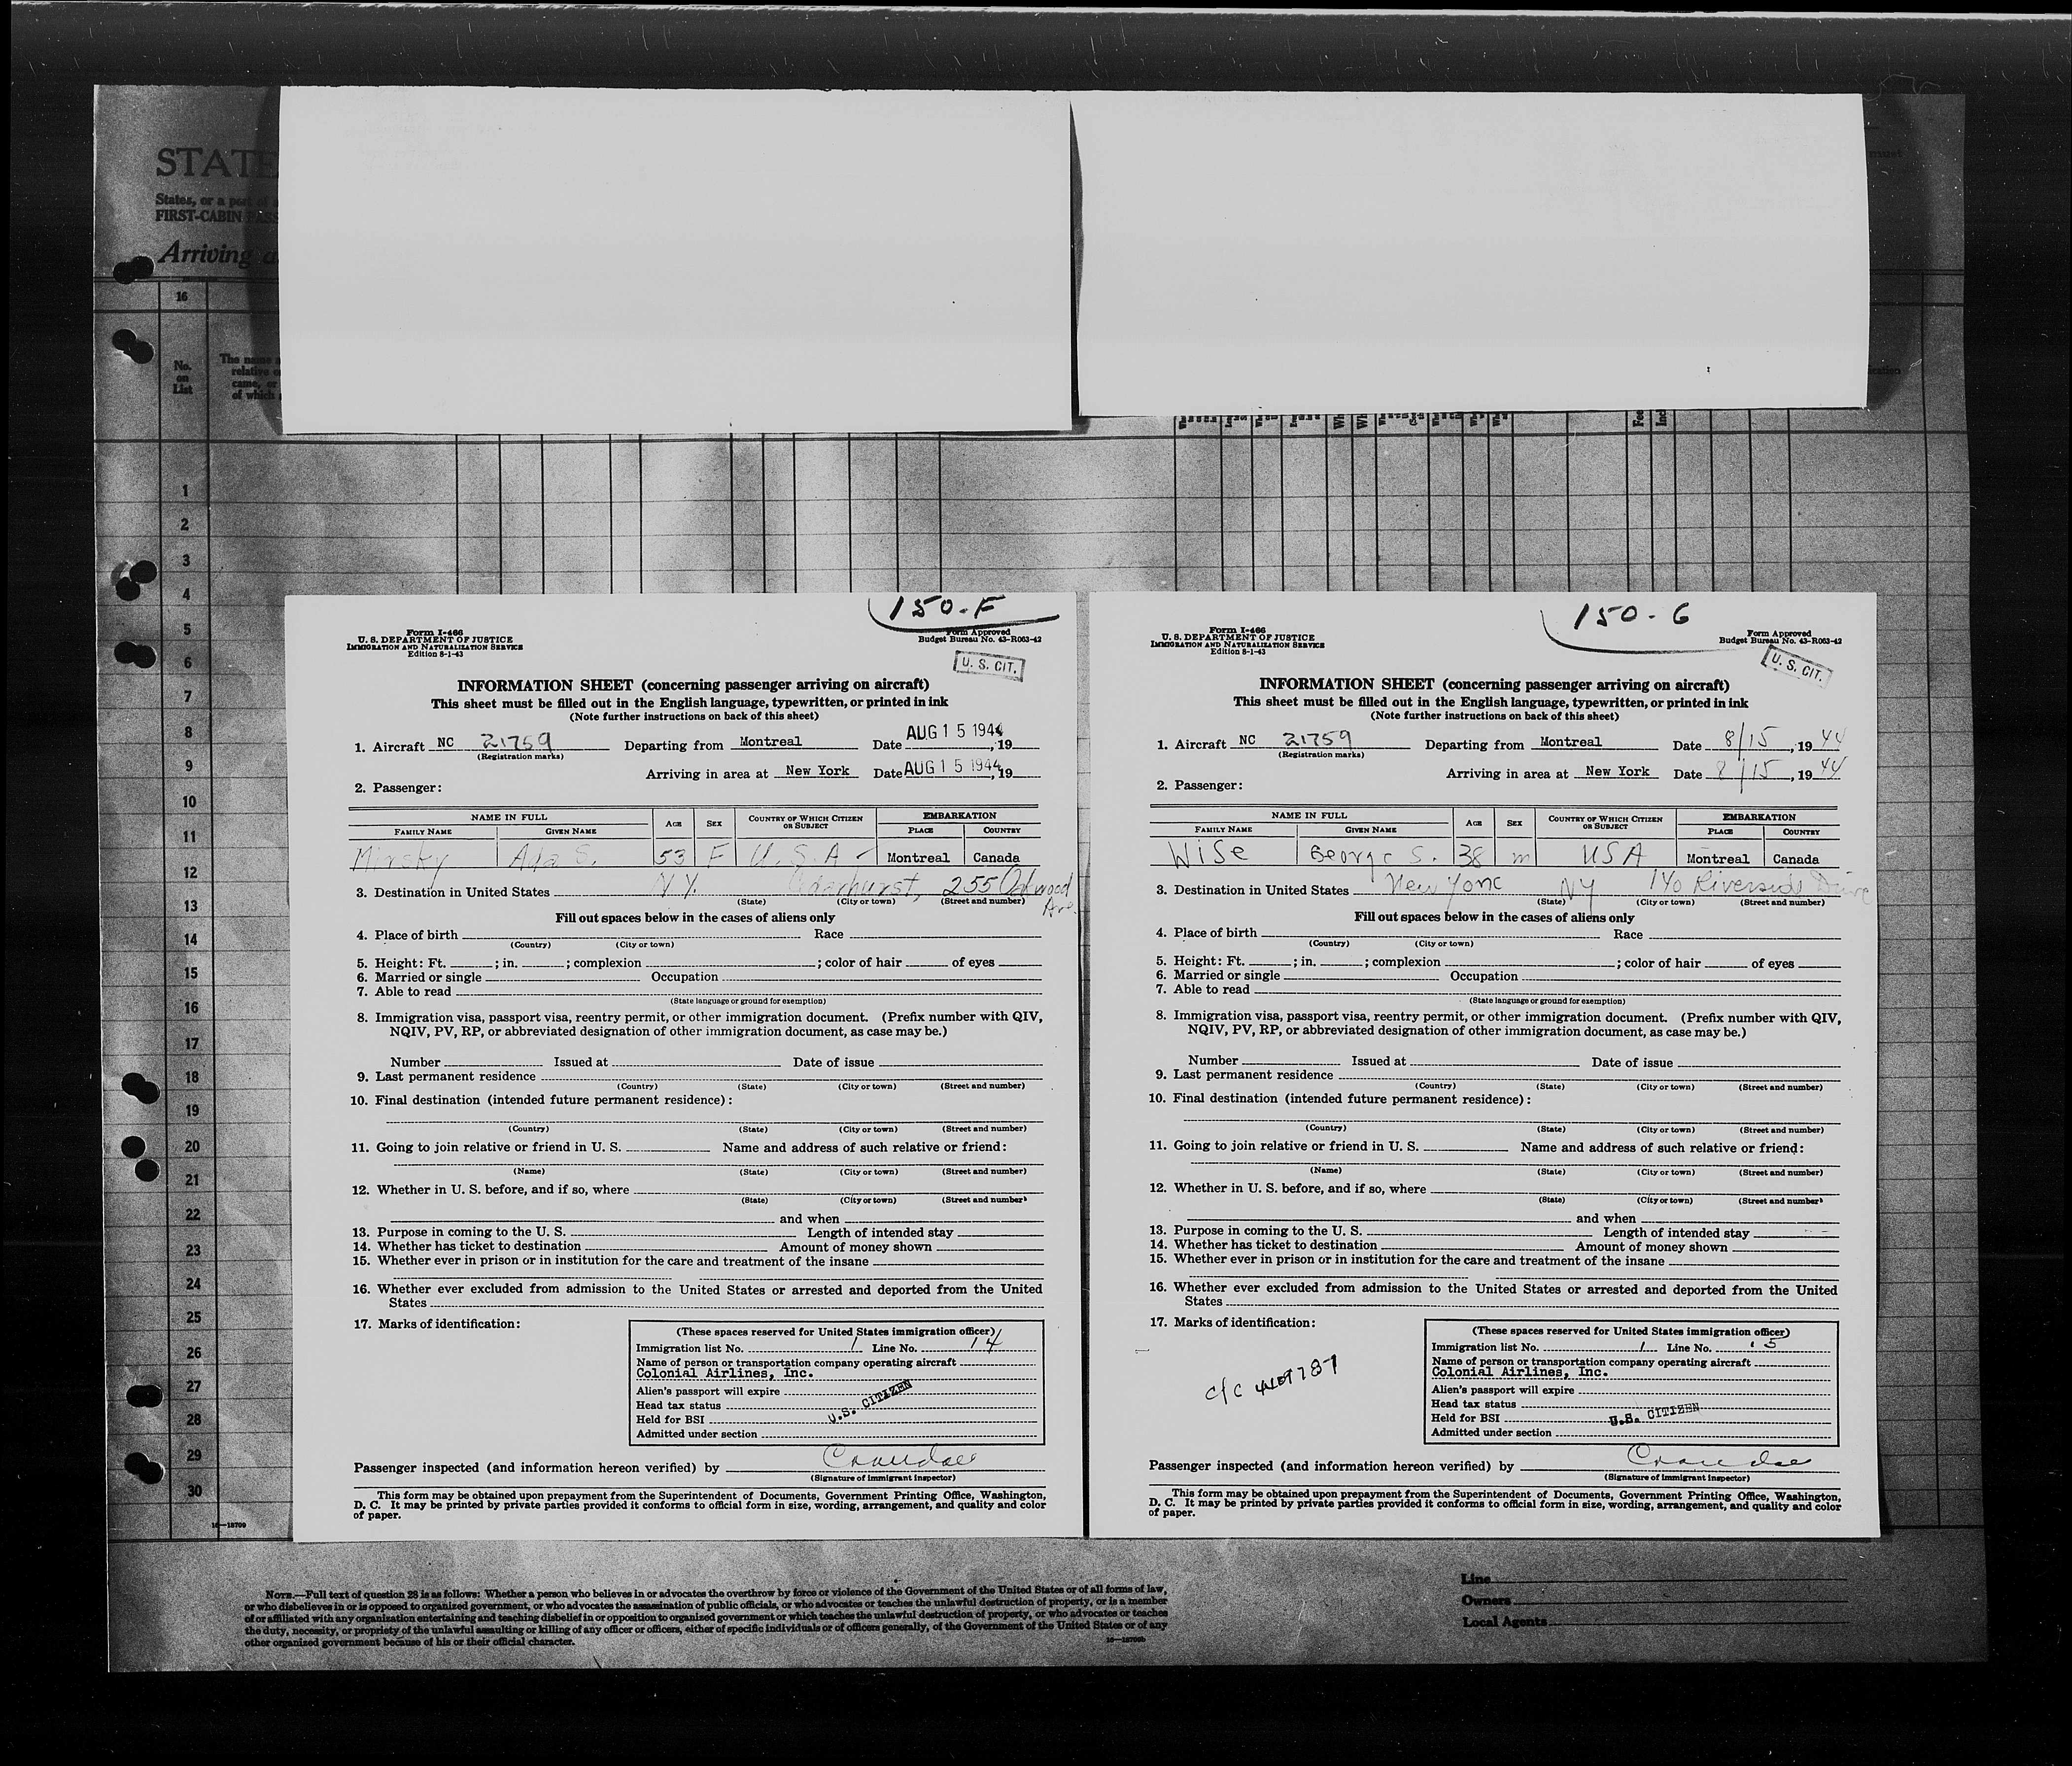 STATE
States, or a port of
FIRST-CABIN PASS
Arriving a
16
No. on List
The name
relative o
came, or
of which
1
2
3
4
5
6
7
8
9
10
11
12
13
14
15
16
17
18
19
20
21
22
23
24
25
26
27
28
29
30
16—18709
150-F
Form I-466
U. S. DEPARTMENT OF JUSTICE
IMMIGRATION AND NATURALIZATION SERVICE
Edition 8-1-43
Form Approved
Budget Bureau No. 43-R063-42
U. S. CIT.
INFORMATION SHEET (concerning passenger arriving on aircraft)
This sheet must be filled out in the English language, typewritten, or printed in ink
(Note further instructions on back of this sheet)
1. Aircraft NC 21759 Departing from Montreal Date AUG 15 1944, 19
(Registration marks)
Arriving in area at New York Date AUG 15 1944, 19
2. Passenger:
NAME IN FULL AGE SEX COUNTRY OF WHICH CITIZEN OR SUBJECT EMBARKATION
FAMILY NAME GIVEN NAME PLACE COUNTRY
Mirsky Ada S. 53 F U.S.A - Montreal Canada
3. Destination in United States N.Y. Cedarhurst, 255 Oakwood Ave.
(State) (City or town) (Street and number)
Fill out spaces below in the cases of aliens only
4. Place of birth Race
(Country) (City or town)
5. Height: Ft. ; in. ; complexion ; color of hair of eyes
6. Married or single Occupation
7. Able to read
(State language or ground for exemption)
8. Immigration visa, passport visa, reentry permit, or other immigration document. (Prefix number with QIV,
NQIV, PV, RP, or abbreviated designation of other immigration document, as case may be.)
Number Issued at Date of issue
9. Last permanent residence
(Country) (State) (City or town) (Street and number)
10. Final destination (intended future permanent residence):
(Country) (State) (City or town) (Street and number)
11. Going to join relative or friend in U. S. Name and address of such relative or friend:
(Name) (State) (City or town) (Street and number)
12. Whether in U. S. before, and if so, where
(State) (City or town) (Street and number)
and when
13. Purpose in coming to the U. S. Length of intended stay
14. Whether has ticket to destination Amount of money shown
15. Whether ever in prison or in institution for the care and treatment of the insane
16. Whether ever excluded from admission to the United States or arrested and deported from the United
States
17. Marks of identification:
(These spaces reserved for United States immigration officer)
Immigration list No. 1 Line No. 14
Name of person or transportation company operating aircraft
Colonial Airlines, Inc.
Alien's passport will expire
Head tax status
Held for BSI U.S. CITIZEN
Admitted under section
Passenger inspected (and information hereon verified) by Crandall
(Signature of immigrant inspector)
This form may be obtained upon prepayment from the Superintendent of Documents, Government Printing Office, Washington,
D. C. It may be printed by private parties provided it conforms to official form in size, wording, arrangement, and quality and color
of paper.
150-G
Form I-466
U. S. DEPARTMENT OF JUSTICE
IMMIGRATION AND NATURALIZATION SERVICE
Edition 8-1-43
Form Approved
Budget Bureau No. 43-R063-42
U. S. CIT.
INFORMATION SHEET (concerning passenger arriving on aircraft)
This sheet must be filled out in the English language, typewritten, or printed in ink
(Note further instructions on back of this sheet)
1. Aircraft NC 21759 Departing from Montreal Date 8/15, 1944
(Registration marks)
Arriving in area at New York Date 8/15, 1944
2. Passenger:
NAME IN FULL AGE SEX COUNTRY OF WHICH CITIZEN OR SUBJECT EMBARKATION
FAMILY NAME GIVEN NAME PLACE COUNTRY
Wise George S. 38 m USA Montreal Canada
3. Destination in United States New York NY 140 Riverside Drive
(State) (City or town) (Street and number)
Fill out spaces below in the cases of aliens only
4. Place of birth Race
(Country) (City or town)
5. Height: Ft. ; in. ; complexion ; color of hair of eyes
6. Married or single Occupation
7. Able to read
(State language or ground for exemption)
8. Immigration visa, passport visa, reentry permit, or other immigration document. (Prefix number with QIV,
NQIV, PV, RP, or abbreviated designation of other immigration document, as case may be.)
Number Issued at Date of issue
9. Last permanent residence
(Country) (State) (City or town) (Street and number)
10. Final destination (intended future permanent residence):
(Country) (State) (City or town) (Street and number)
11. Going to join relative or friend in U. S. Name and address of such relative or friend:
(Name) (State) (City or town) (Street and number)
12. Whether in U. S. before, and if so, where
(State) (City or town) (Street and number)
and when
13. Purpose in coming to the U. S. Length of intended stay
14. Whether has ticket to destination Amount of money shown
15. Whether ever in prison or in institution for the care and treatment of the insane
16. Whether ever excluded from admission to the United States or arrested and deported from the United
States
17. Marks of identification:
c/c
(These spaces reserved for United States immigration officer)
Immigration list No. 1 Line No. 15
Name of person or transportation company operating aircraft
Colonial Airlines, Inc.
Alien's passport will expire
Head tax status
Held for BSI U.S. CITIZEN
Admitted under section
Passenger inspected (and information hereon verified) by Crandall
(Signature of immigrant inspector)
This form may be obtained upon prepayment from the Superintendent of Documents, Government Printing Office, Washington,
D. C. It may be printed by private parties provided it conforms to official form in size, wording, arrangement, and quality and color
of paper.
NOTE.—Full text of question 28 is as follows: Whether a person who believes in or advocates the overthrow by force or violence of the Government of the United States or of all forms of law,
or who disbelieves in or is opposed to organized government, or who advocates the assassination of public officials, or who advocates or teaches the unlawful destruction of property, or is a member
of or affiliated with any organization entertaining and teaching disbelief in or opposition to organized government or which teaches the unlawful destruction of property, or who advocates or teaches
the duty, necessity, or propriety of the unlawful assaulting or killing of any officer or officers, either of specific individuals or of officers generally, of the Government of the United States or of any
other organized government because of his or their official character.
16—18709b
Line
Owners
Local Agents